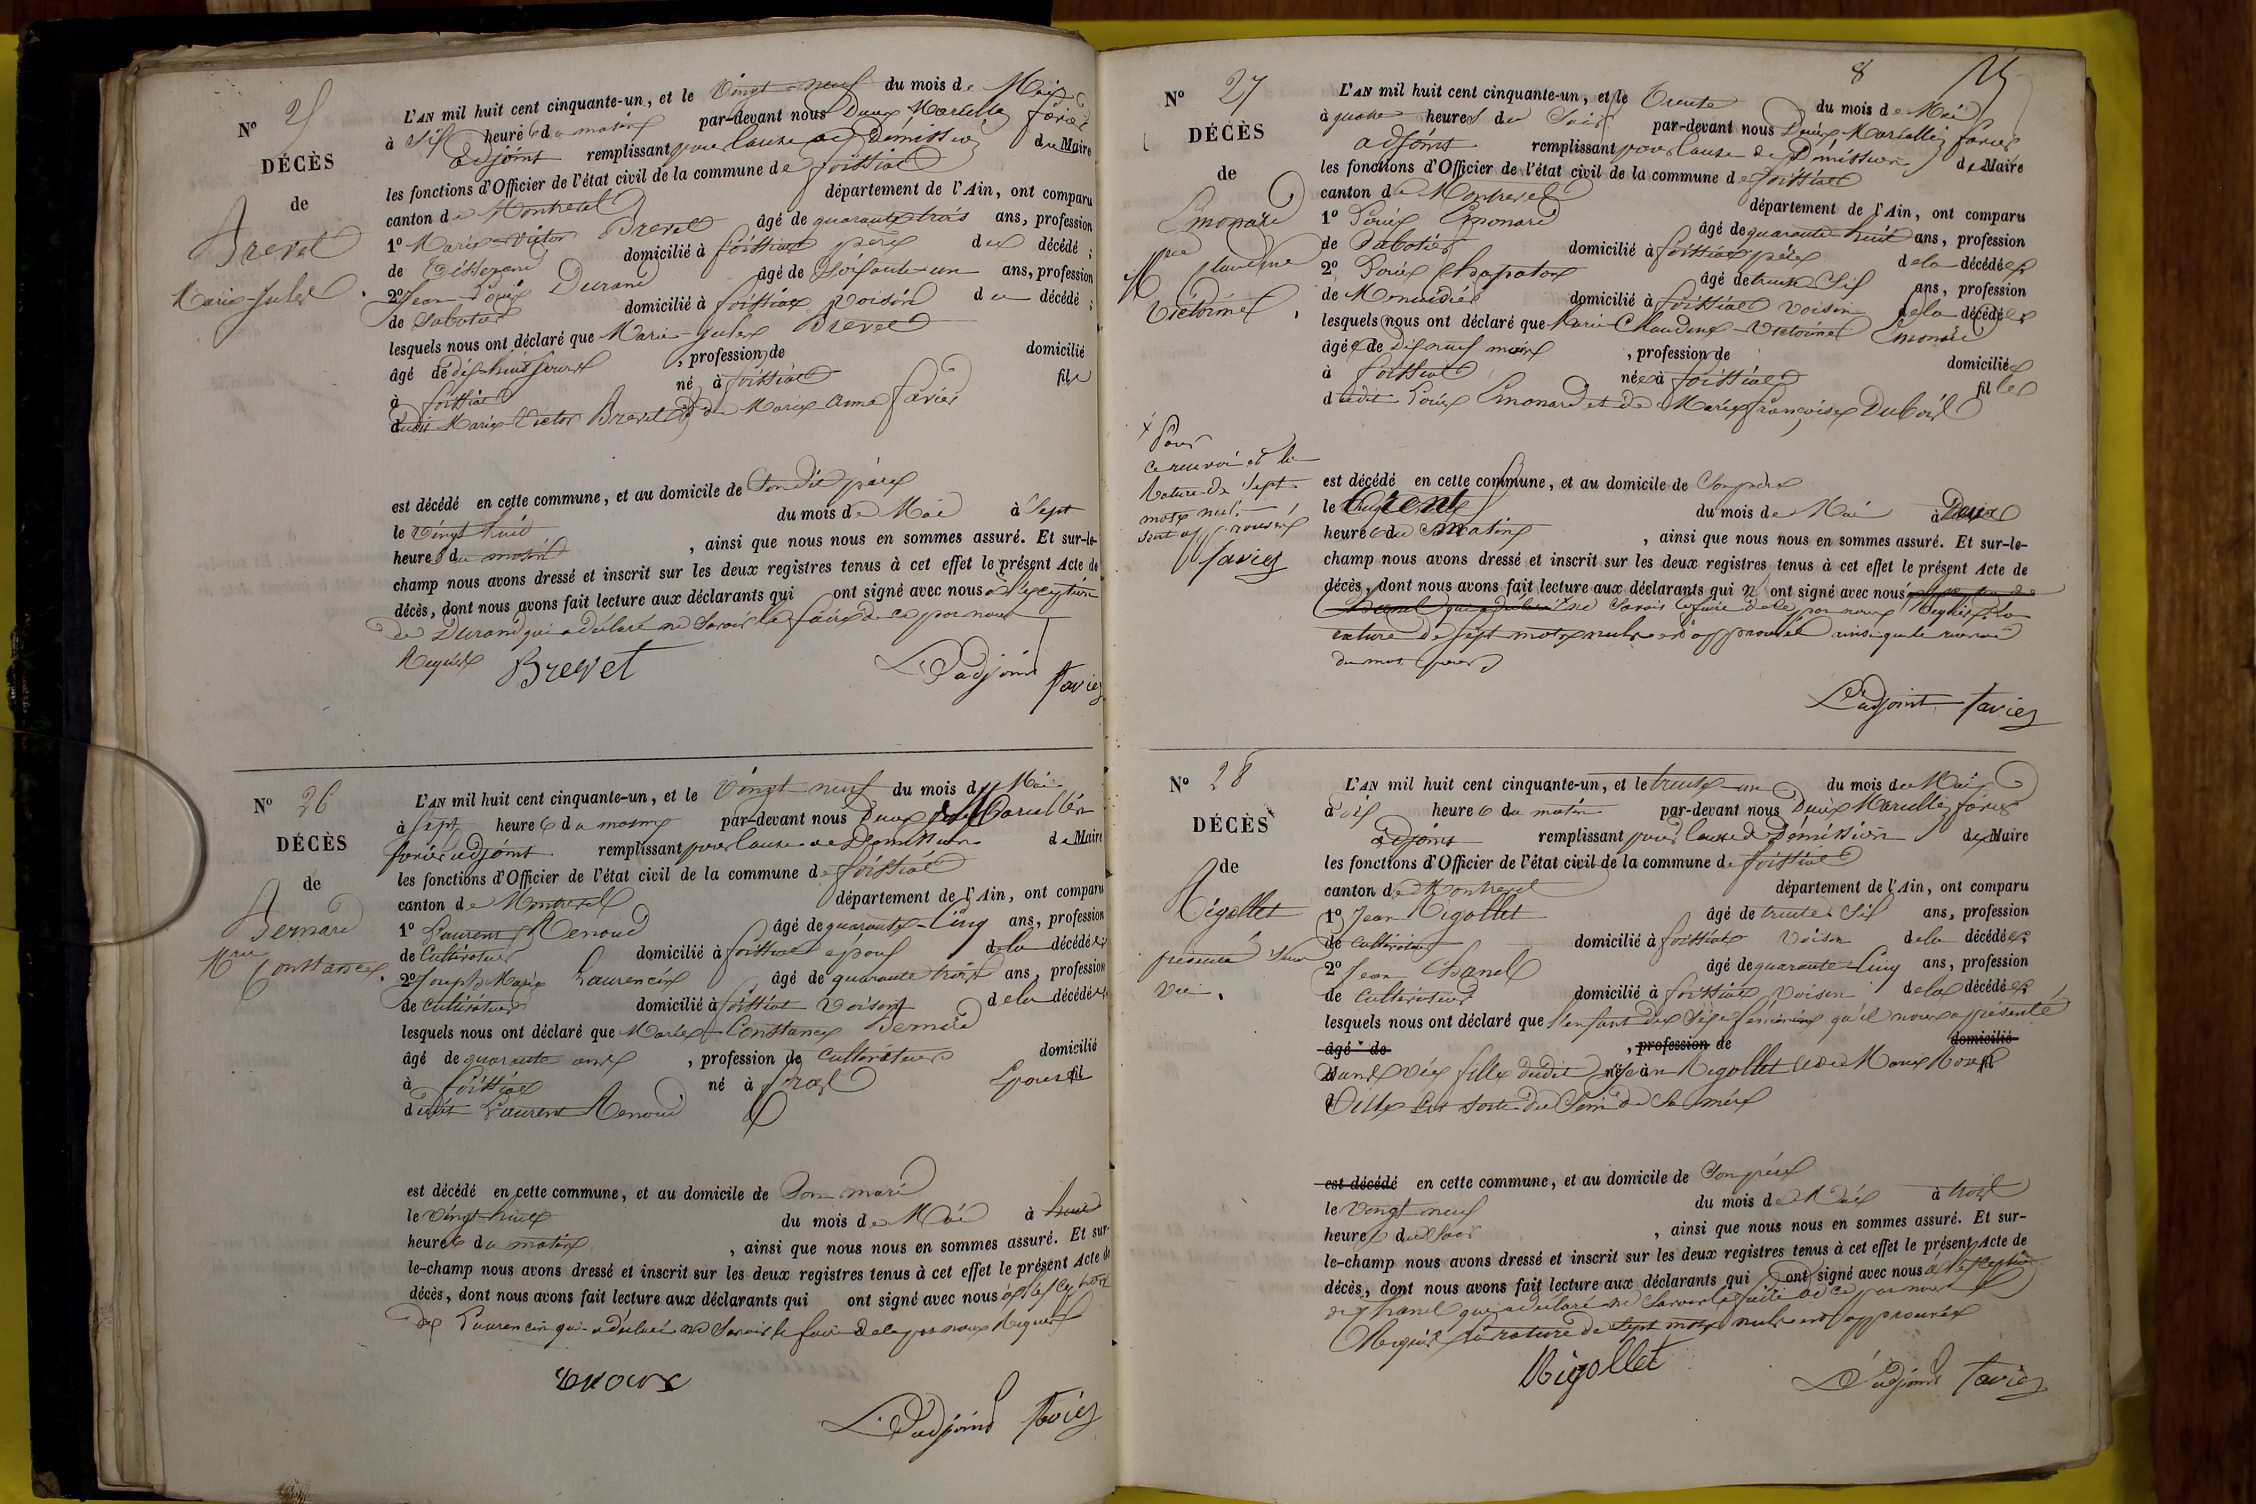 N° 25
DÉCÈS
de
Brevet
Marie-Jules
L'AN mil huit cent cinquante-un, et le Vingt-neuf du mois de Mai
à Six heure s du matin par-devant nous Marcellin favier
adjoint remplissant pour cause de Démission du Maire
les fonctions d'Officier de l'état civil de la commune de foissiat
canton de Montrevel département de l'Ain, ont comparu
1° Marie-Victor Brevet âgé de quarante trois ans, profession
de Tisserand domicilié à foissiat père du décédé ;
2° Jean Louis Durand âgé de Soixante-un ans, profession
de Sabotier domicilié à foissiat Voisin du décédé ;
lesquels nous ont déclaré que Marie-Jules Brevet
âgé de dix-huit jours , profession de domicilié
à foissiat né à foissiat fils
dudit Marie-Victor Brevet et de Marie Anne favier
est décédé en cette commune, et au domicile de Son dit père
le Vingt huit du mois de Mai à Sept
heure s du matin , ainsi que nous nous en sommes assuré. Et sur-le-
champ nous avons dressé et inscrit sur les deux registres tenus à cet effet le présent Acte de
décès, dont nous avons fait lecture aux déclarants qui ont signé avec nous à l'exception
de Durand qui a déclaré ne Savoir le faire de ce par nous
Requis Brevet L'adjoint favier
N° 26
DÉCÈS
de
Bernard
Mrie Constance
L'AN mil huit cent cinquante-un, et le Vingt neuf du mois de Mai
à Sept heure s du matin par-devant nous Marcellin
favier adjoint remplissant pour cause de Démission de Maire
les fonctions d'Officier de l'état civil de la commune de foissiat
canton de Montrevel département de l'Ain, ont comparu
1° Laurent Renoud âgé de quarante-Cinq ans, profession
de Cultivateur domicilié à foissiat époux de la décédée
2° Joseph Marie Laurencin âgé de quarante trois ans, profession
de Cultivateur domicilié à foissiat Voisin de la décédée
lesquels nous ont déclaré que Marie-Constance Bernard
âgé de quarante ans , profession de Cultivateur domicilié
à foissiat né à Epouse fil
dudit Laurent Renoud
est décédé en cette commune, et au domicile de Son mari
le Vingt-huit du mois de Mai à
heure s du matin , ainsi que nous nous en sommes assuré. Et sur-
le-champ nous avons dressé et inscrit sur les deux registres tenus à cet effet le présent Acte de
décès, dont nous avons fait lecture aux déclarants qui ont signé avec nous à l'exception
de Laurencin qui a déclaré ne Savoir le faire de ce par nous Requis
L'adjoint favier
8
N° 27
DÉCÈS
de
Emonard
Mrie Claudine
Victoire
L'AN mil huit cent cinquante-un, et le Trente du mois de Mai
à quatre heure s du Soir par-devant nous Marcellin favier
adjoint remplissant pour cause de Démission de Maire
les fonctions d'Officier de l'état civil de la commune de foissiat
canton de Montrevel département de l'Ain, ont comparu
1° Louis Emonard âgé de quarante huit ans, profession
de Sabotier domicilié à foissiat père de la décédée
2° Louis Chapatou âgé de trente Six ans, profession
de Menuisier domicilié à foissiat Voisin de la décédée
lesquels nous ont déclaré que Marie-Claudine-Victoire Emonard
âgée de Dix neuf mois , profession de domiciliée
à foissiat née à foissiat fille
dudit Louis Emonard et de Marie françoise Dubois
x Pour
ce renvoi et la
Rature de Sept
mots nuls
sont approuvés
favier
est décédé en cette commune, et au domicile de Son père
le trente du mois de Mai à Deux
heure s du matin , ainsi que nous nous en sommes assuré. Et sur-le-
champ nous avons dressé et inscrit sur les deux registres tenus à cet effet le présent Acte de
décès, dont nous avons fait lecture aux déclarants qui n ont signé avec nous
Savoir le faire de ce par nous Requis. La
rature de Sept mots nuls est approuvée ainsi que le renvoi
du mot pour
L'adjoint favier
N° 28
DÉCÈS
de
Rigollet
présenté Sans
Vie.
L'AN mil huit cent cinquante-un, et le trente-un du mois de Mai
à Six heure s du matin par-devant nous Marcellin favier
adjoint remplissant pour cause de Démission de Maire
les fonctions d'Officier de l'état civil de la commune de foissiat
canton de Montrevel département de l'Ain, ont comparu
1° Jean Rigollet âgé de trente Six ans, profession
de Cultivateur domicilié à foissiat Voisin de la décédée
2° Jean Chanel âgé de quarante Cinq ans, profession
de Cultivateur domicilié à foissiat Voisin de la décédée
lesquels nous ont déclaré que l'enfant du Sexe féminin qu'il nous a présenté
âgé de , profession de domicilié
Sans Vie fille dudit né à Jean Rigollet et de Marie fil
est sorti du Sein de Sa mère
est décédé en cette commune, et au domicile de Son père
le Vingt neuf du mois de Mai à trois
heure s du Soir , ainsi que nous nous en sommes assuré. Et sur-
le-champ nous avons dressé et inscrit sur les deux registres tenus à cet effet le présent Acte de
décès, dont nous avons fait lecture aux déclarants qui ont signé avec nous à l'exception
de Chanel qui a déclaré ne Savoir le faire de ce par nous
Requis La rature de Sept mots nuls est approuvée
Rigollet L'adjoint favier